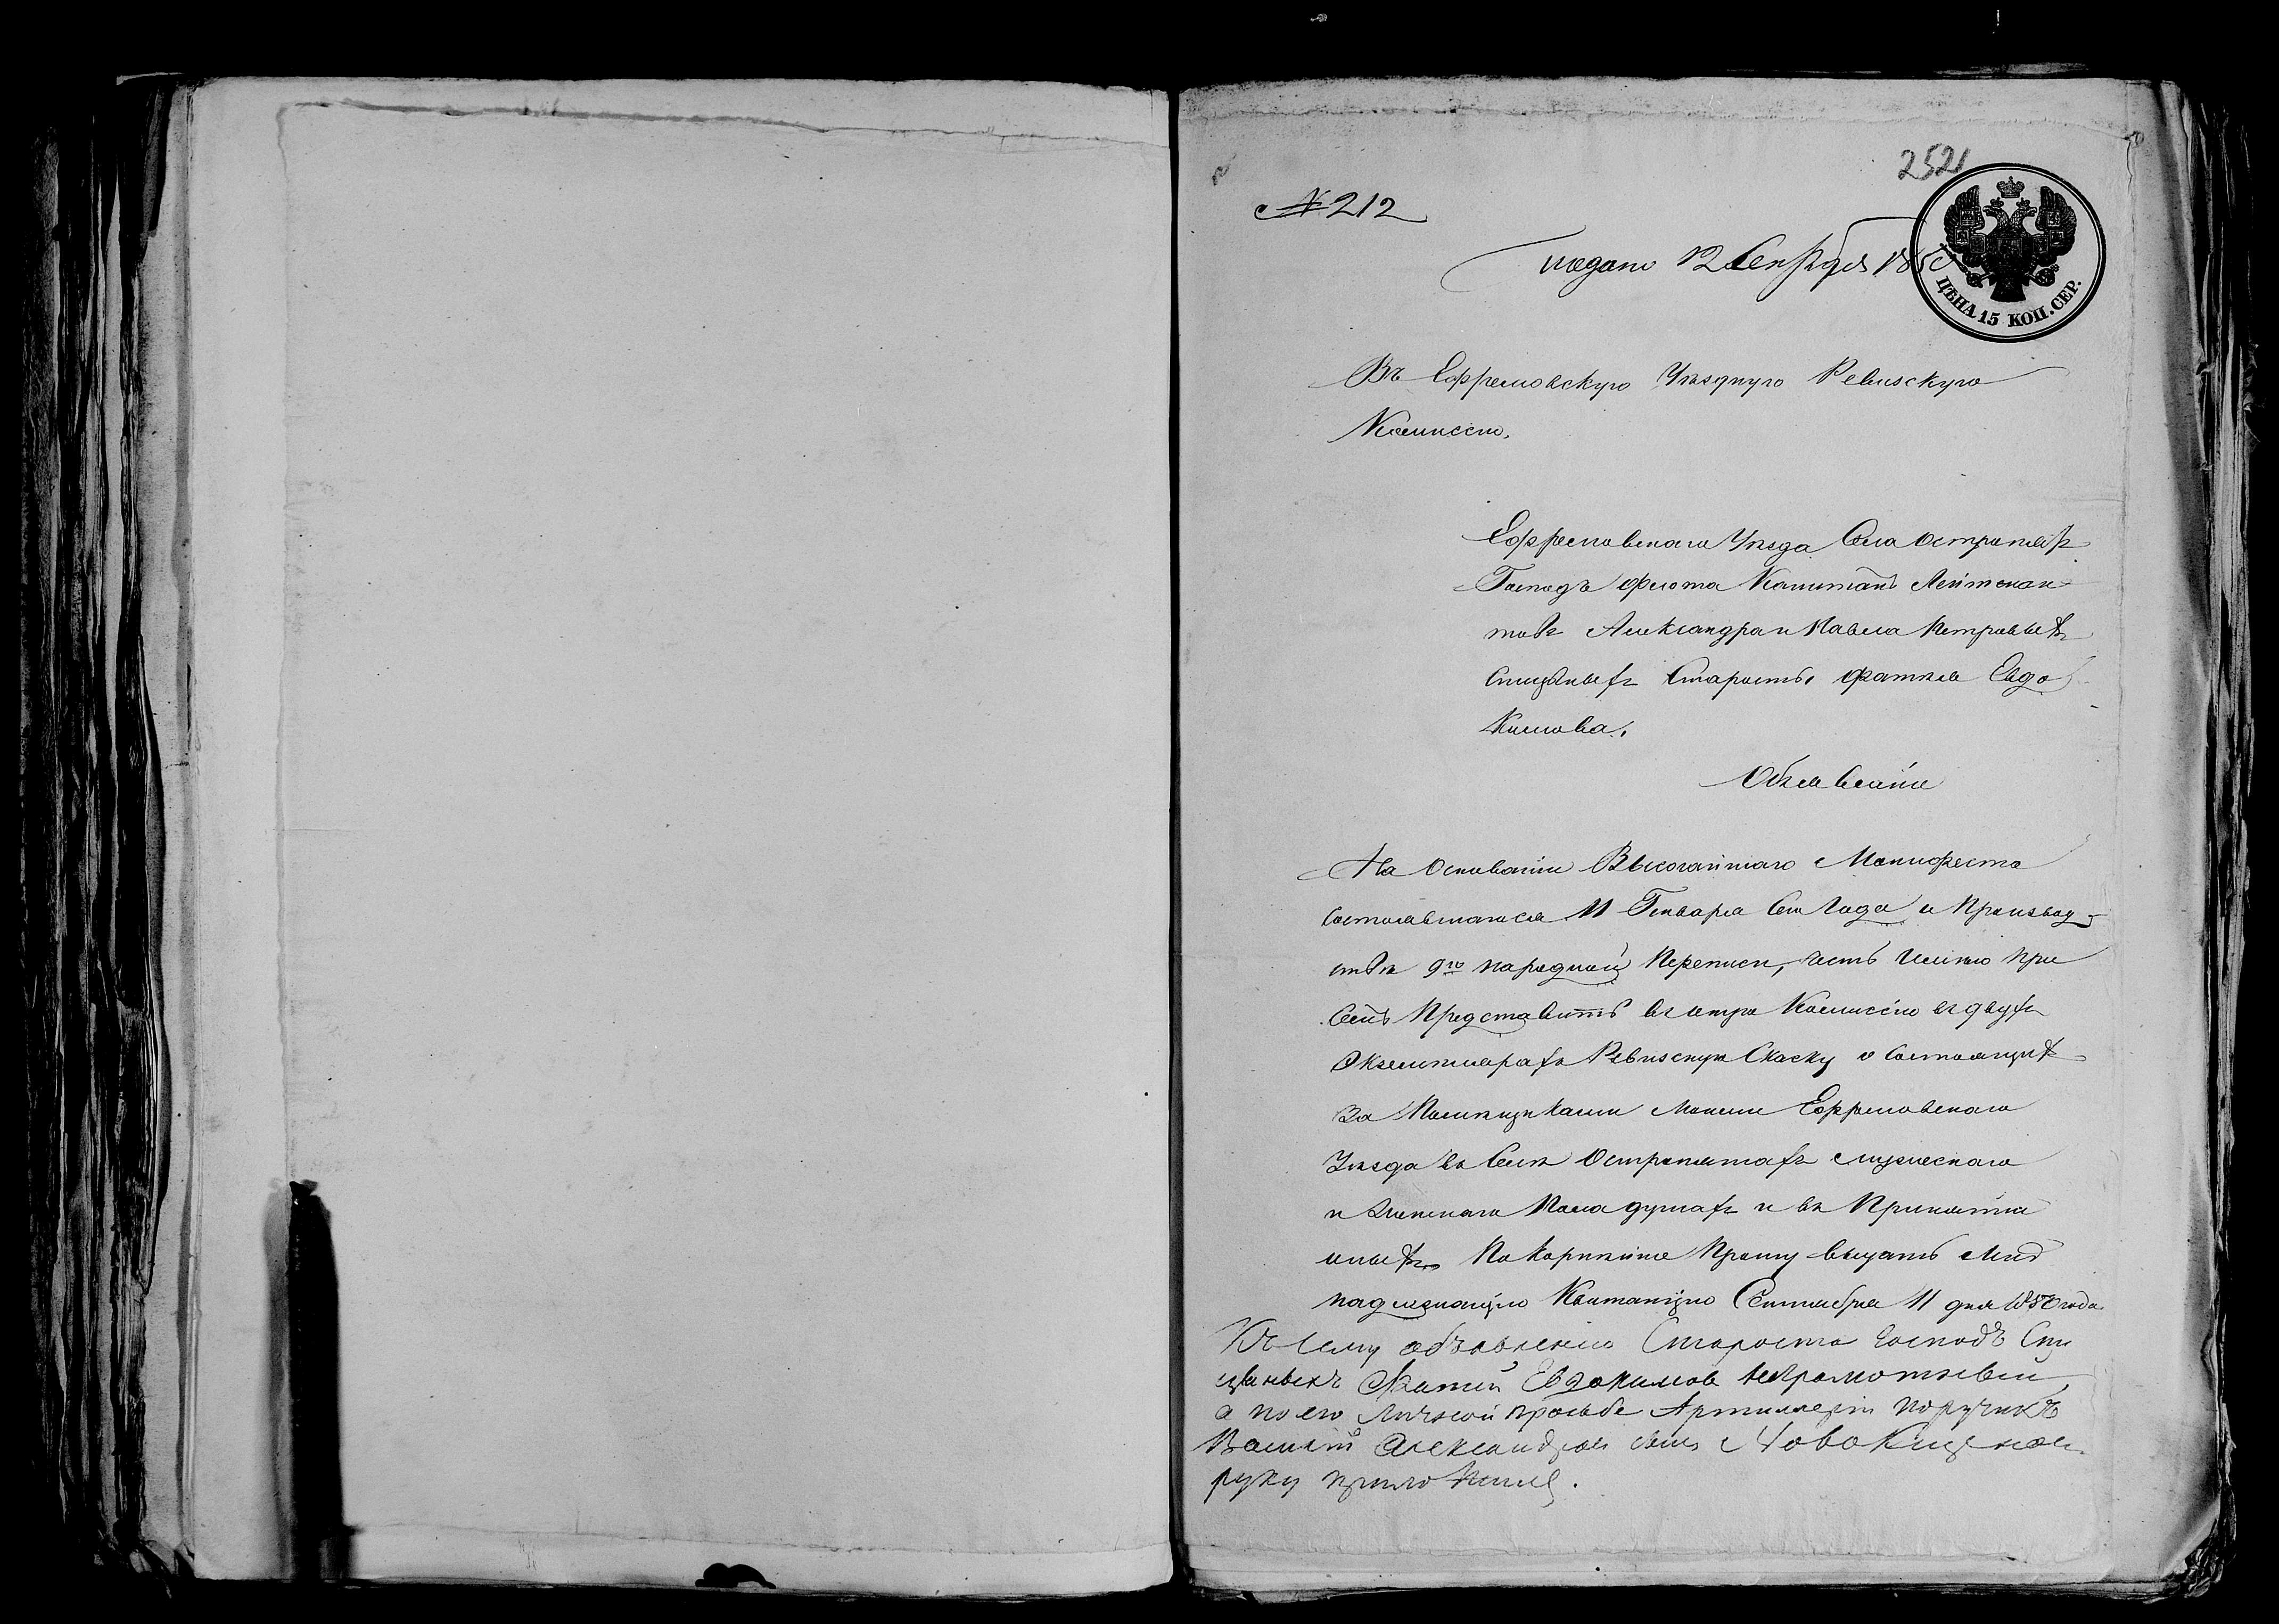 2521
№ 212
подано 12 Сентября 1850
ЦѢНА 15 КОП. СЕР.
Въ Ефремовскую Уѣздную Ревизскую
Комиссію.
Ефремовскаго Уѣзда Села Остропятъ
Господъ флота Капитанъ Лейтенан-
товъ Александра и Павла Петровыхъ
Спицыныхъ Старосты Фатѣя Евдо
кимова.
Объявленіе
На Основаніи Высочайшаго Манифеста
состоявшагося 11 Генваря сего Года о Производ-
ствѣ 9го народной Переписи, честь Имѣю при
семъ Представить въ оную Комиссію въ двухъ
Экземплярахъ Ревизскую Скаску о состоящихъ
За Помѣщиками Моими Ефремовскаго
Уѣзда въ Селѣ Остропятахъ мужескаго
и женскаго Пола душахъ и въ Принятіи
оныхъ Покорнѣйше Прошу выдать мнѣ
надлежащую Квитанцію Сентября 11 дня 1850 года
Къ сему объявленію Староста Господъ Спи
цыныхъ Фатей Евдокимов неграмотный
а по его личной прозьбе Артиллеріи поручикъ
Василій Александров сынъ Новокщенов
руку приложилъ.